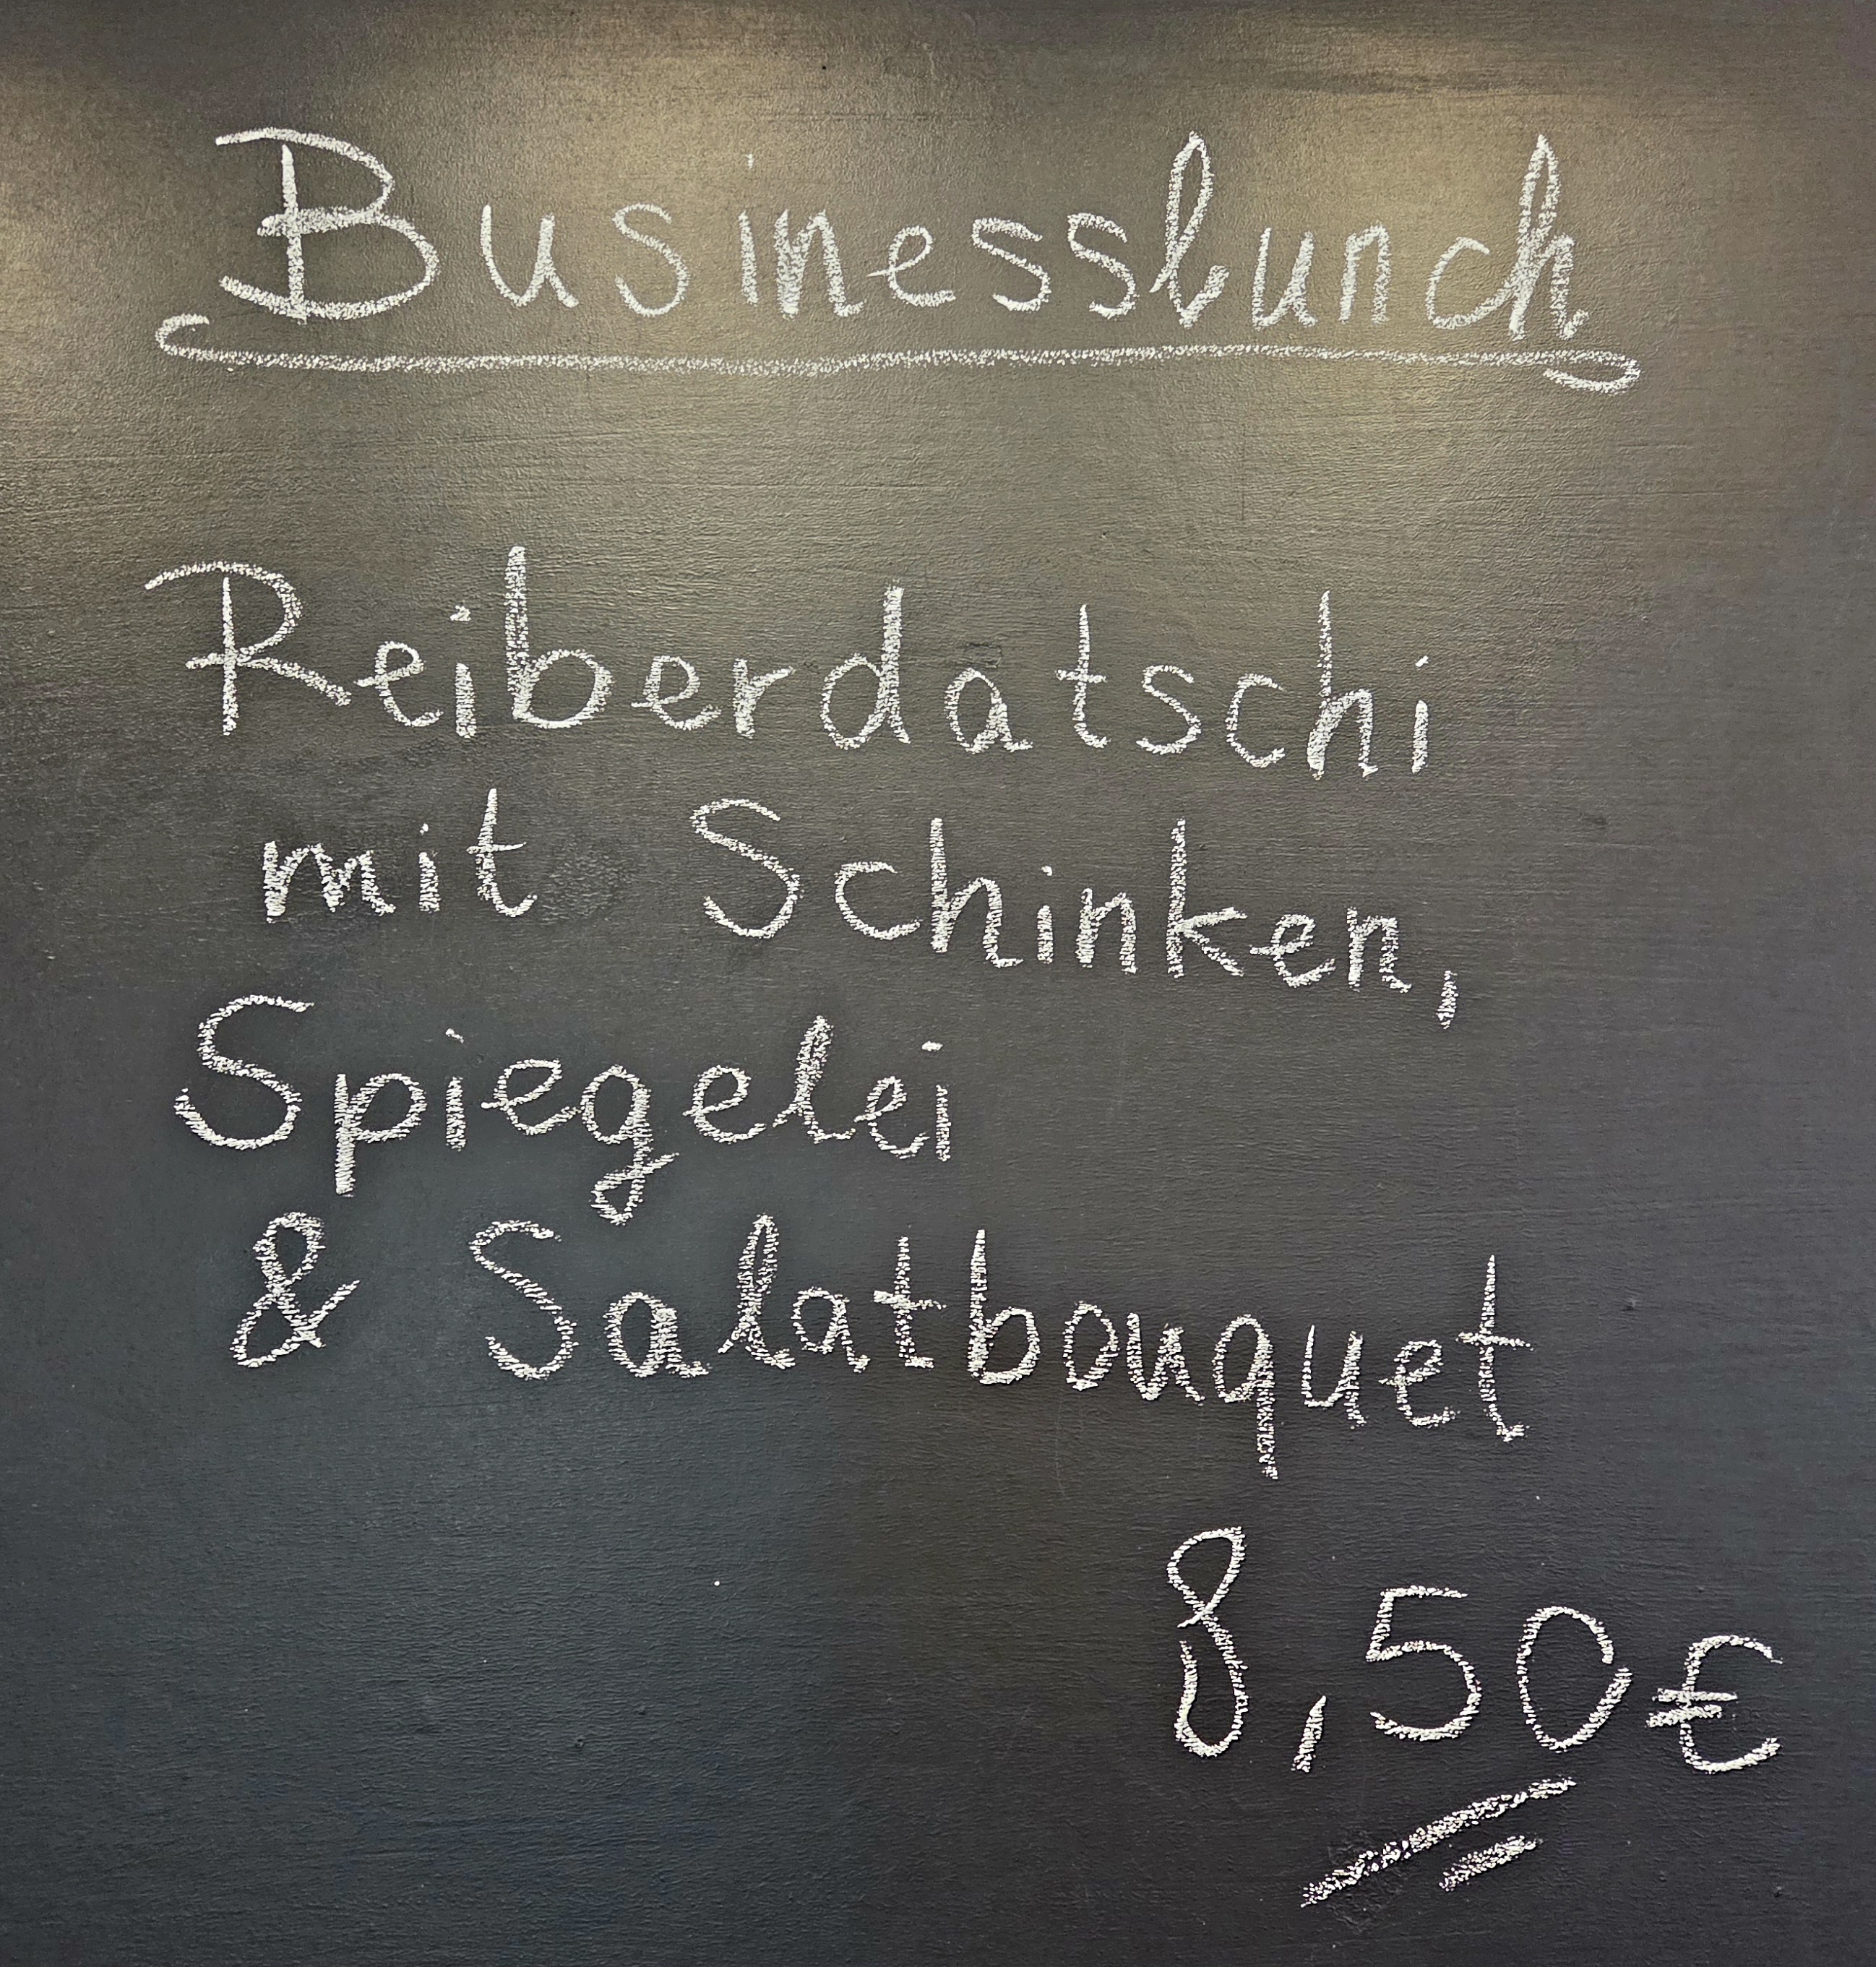 Businesslunch
Reiberdatschi
mit Schinken,
Spiegelei
& Salatbouquet
8,50€